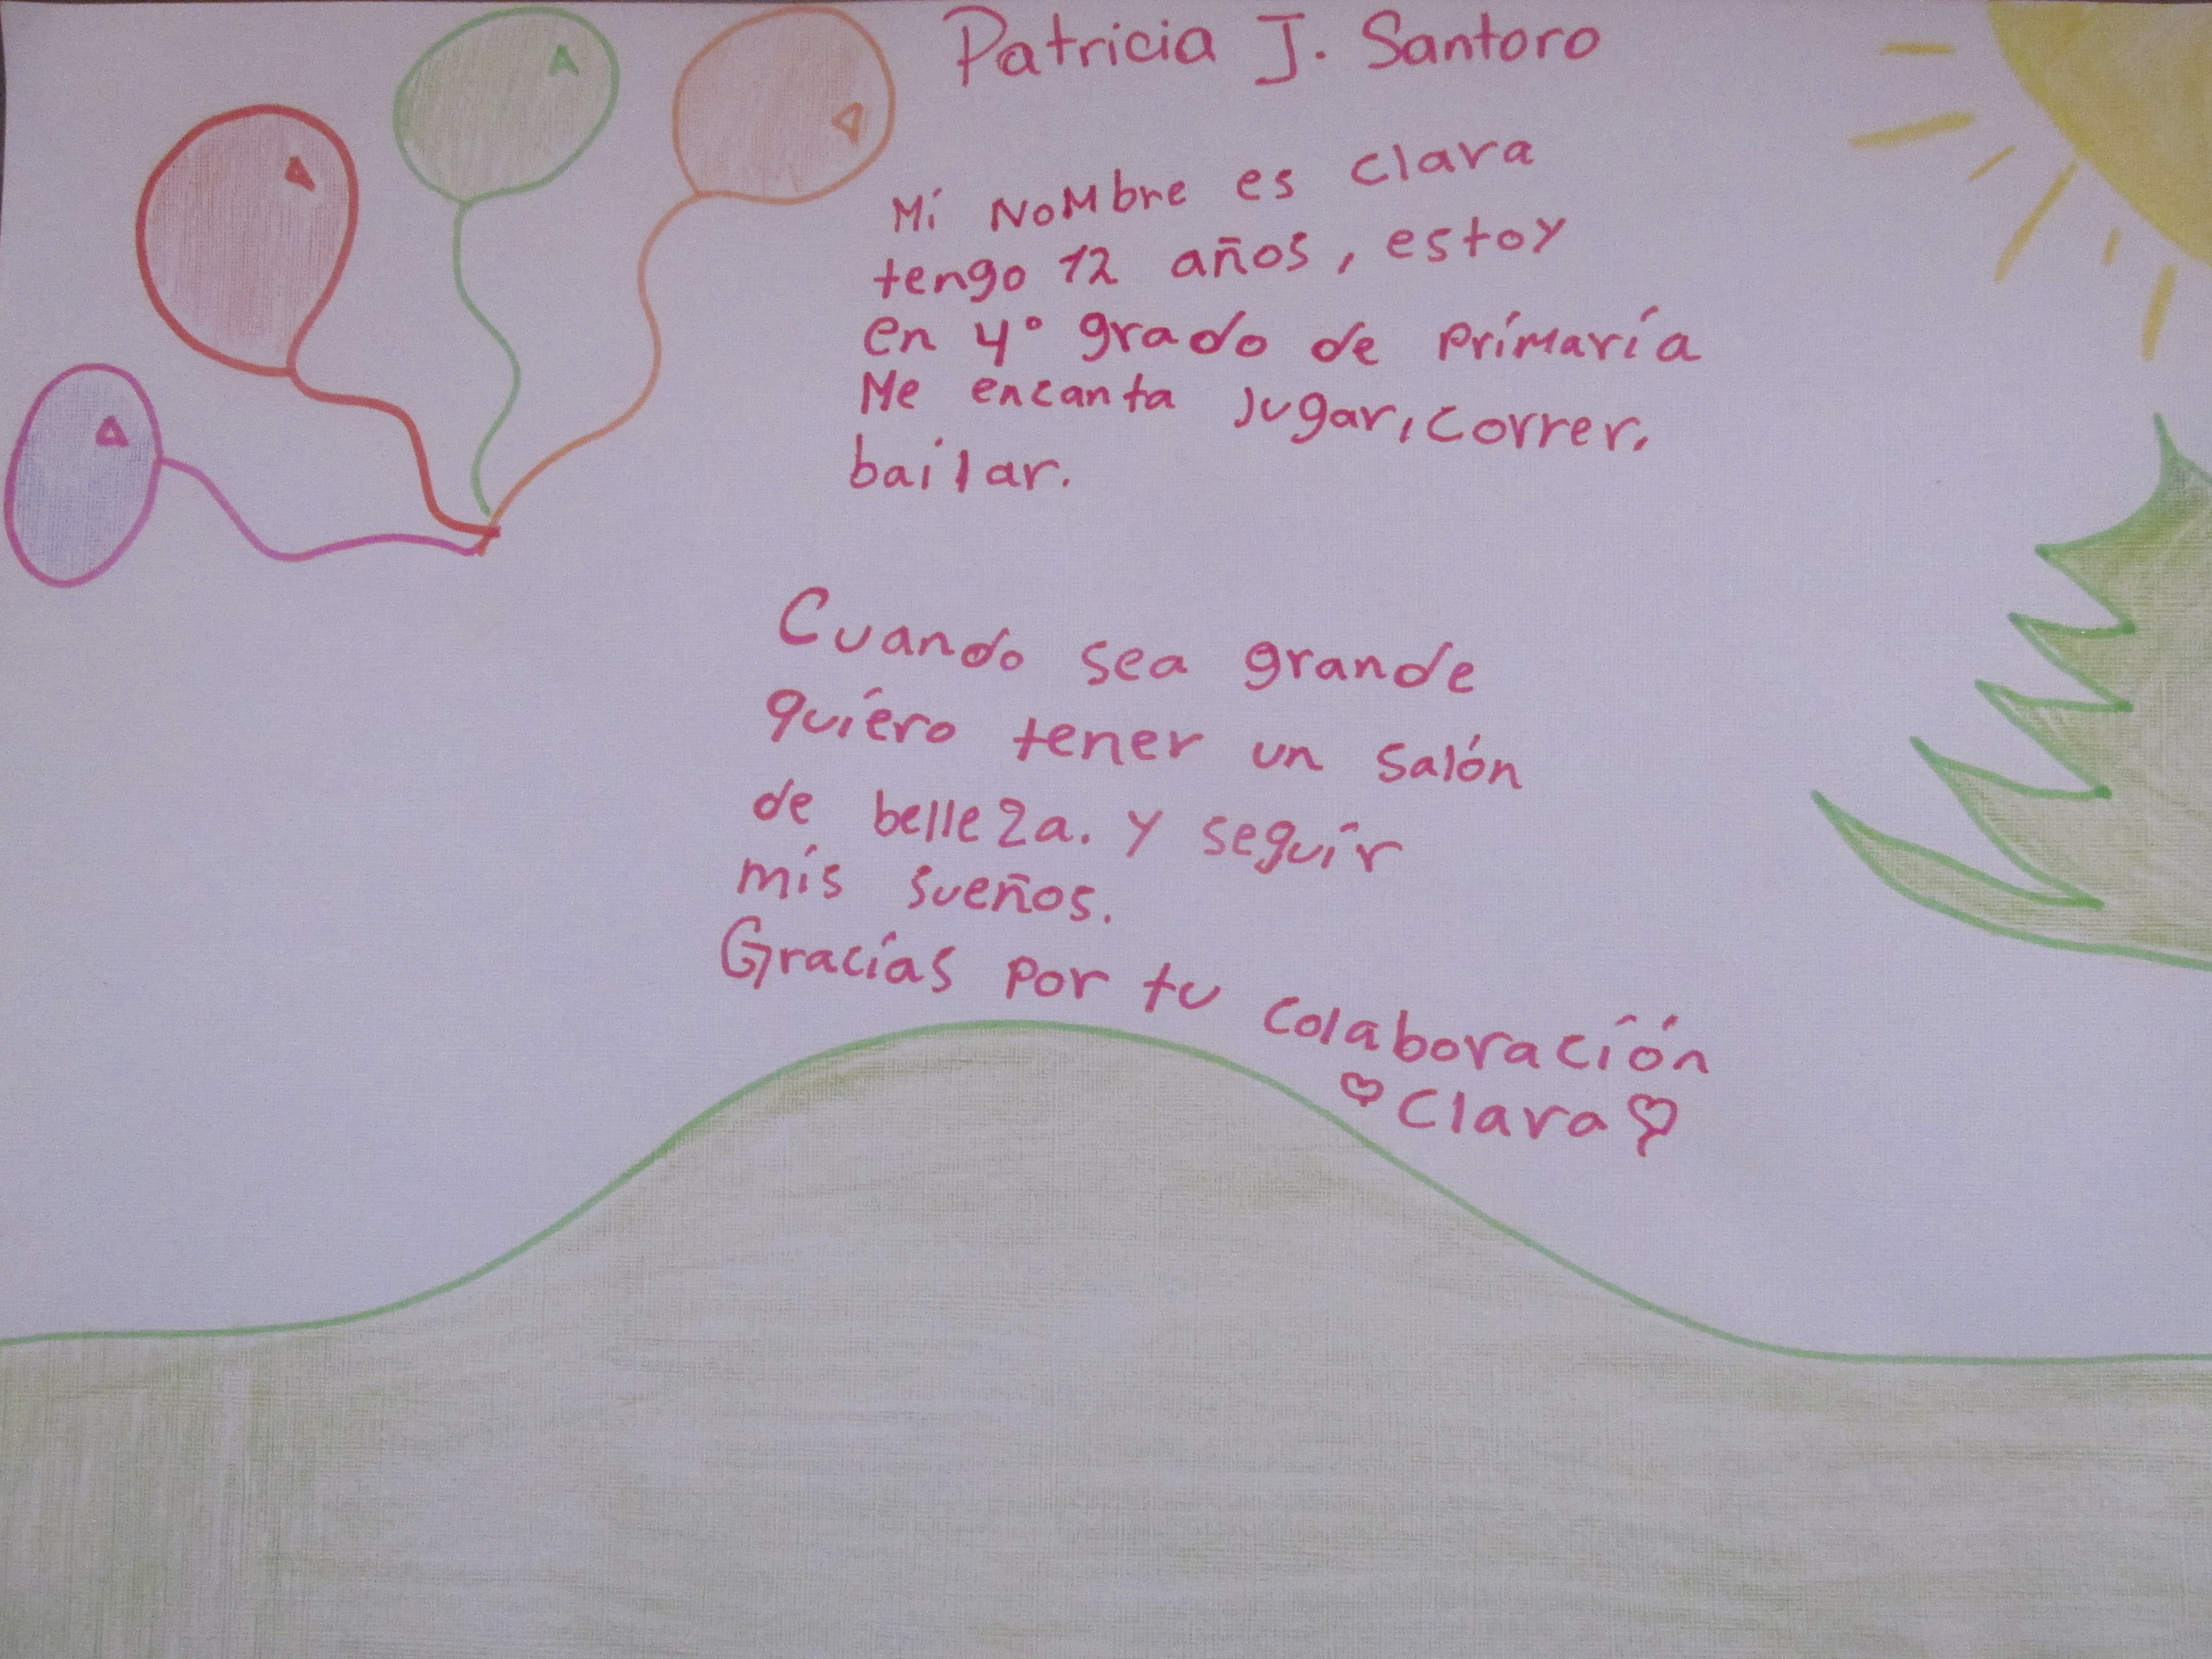 Patricia J. Santoro
Mi NoMbre es clara
tengo 12 años, estoy
en 4° grado de primaria
Me encanta jugar, correr,
bailar.
Cuando sea grande
quiero tener un salón
de belleza. y seguir
mis sueños.
Gracias por tu colaboración
♡ Clara ♡